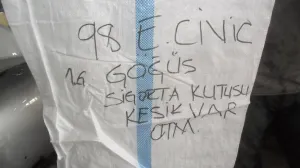 98 E. CİVİC
GÖĞÜS
SİGORTA KUTUSU
KESİK VAR
OTM